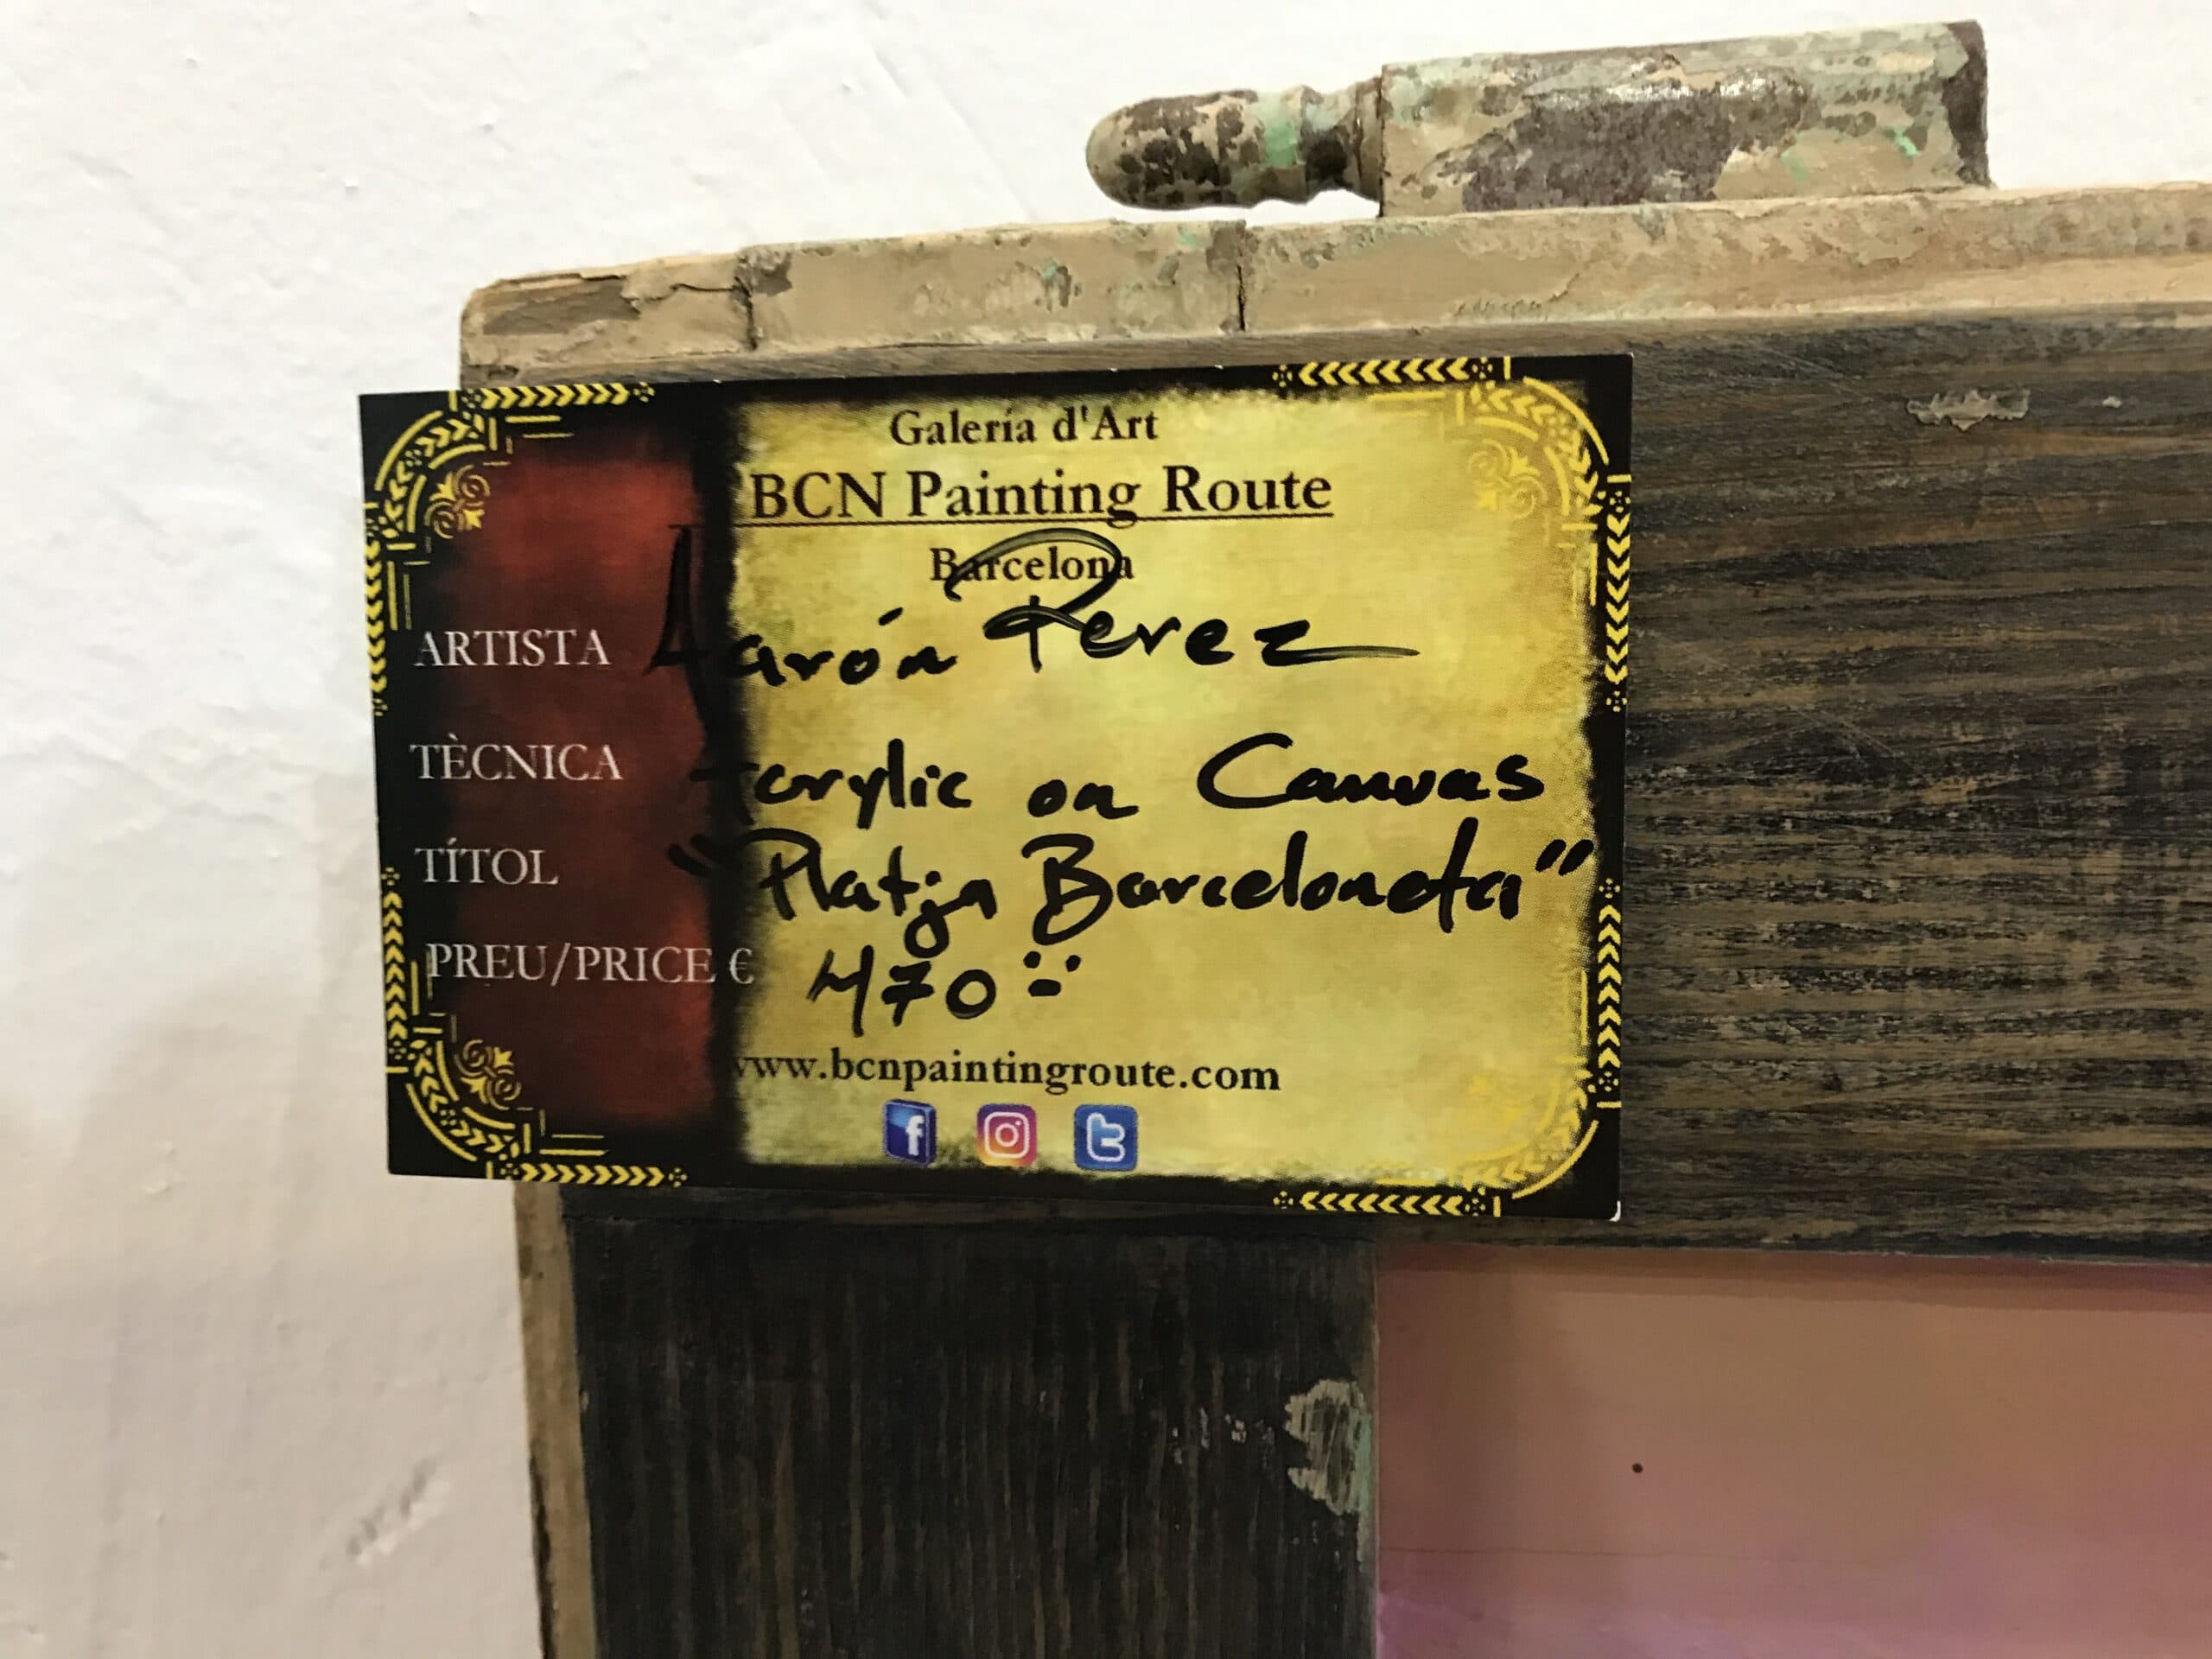 Galería d'Art
BCN Painting Route
Barcelona
ARTISTA Aarón Perez
TÈCNICA Acrylic on Canvas
TÍTOL "Platja Barceloneta"
PREU/PRICE € 470
www.bcnpaintingroute.com